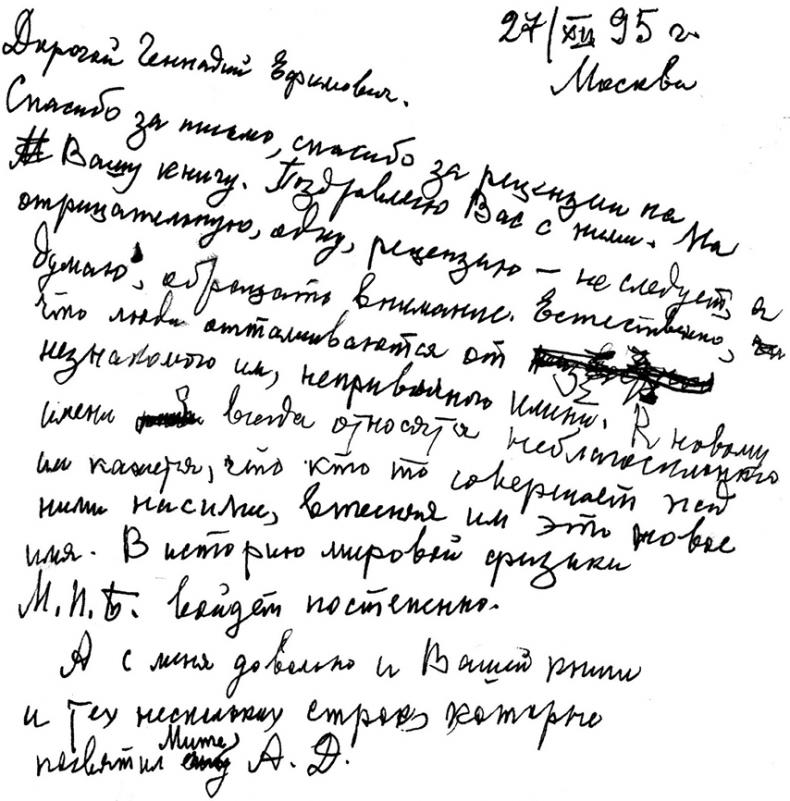 27/XII 95 г.
Москва
Дорогой Геннадий Ефимович.
Спасибо за письмо, спасибо за рецензии на
Вашу книгу. Поздравляю Вас с ними. На
отрицательную, одну, рецензию — не следует, я
думаю, обращать внимание. Естественно,
что люди отталкиваются от
незнакомого им, непривычного имени. К новому
имени всегда относятся неблагосклонно
им кажется, что кто то совершает над
ними насилие, втесняя им это новое
имя. В историю мировой физики
М.П.Б. войдет постепенно.
А с меня довольно и Вашей книги
и тех нескольких строк, которые
посвятил Мите, А. Д.